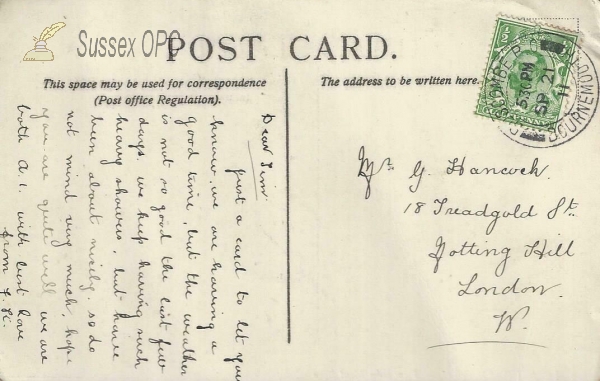 Sussex OPC
POST CARD.
This space may be used for correspondence
(Post office Regulation).
The address to be written here.
BOSCOMBE B.O.
5.30 PM
SP 21
11
BOURNEMOUTH
Dear Jim
just a card to let you
know we are having a
good time, but the weather
is not so good the last few
days we keep having such
heavy showers, but have
been about nicely. so do
not mind very much, hope
you are quite well we are
both A.1. with best love
from
Mr G. Hancock.
18 Treadgold St.
Notting Hill
London.
W.